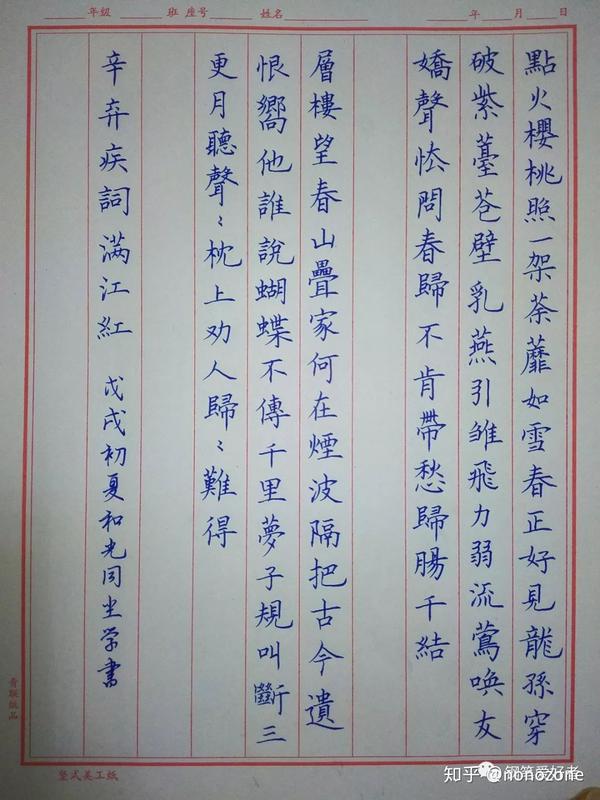 年级 班 座号 姓名 年 月 日
點火櫻桃照一架荼蘼如雪春正好見龍孫穿
破紫薹苍壁乳燕引雏飛力弱流鶯唤友
嬌聲怯問春歸不肯帶愁歸腸千結
層樓望春山疊家何在煙波隔把古今遺
恨嚮他誰說蝴蝶不傳千里夢子規叫斷三
更月聽聲〻枕上劝人歸〻難得
辛弃疾詞满江紅 戊戌初夏和光同尘学書
青联纸品
竖式美工纸
知乎 @nonozone
钢笔爱好者